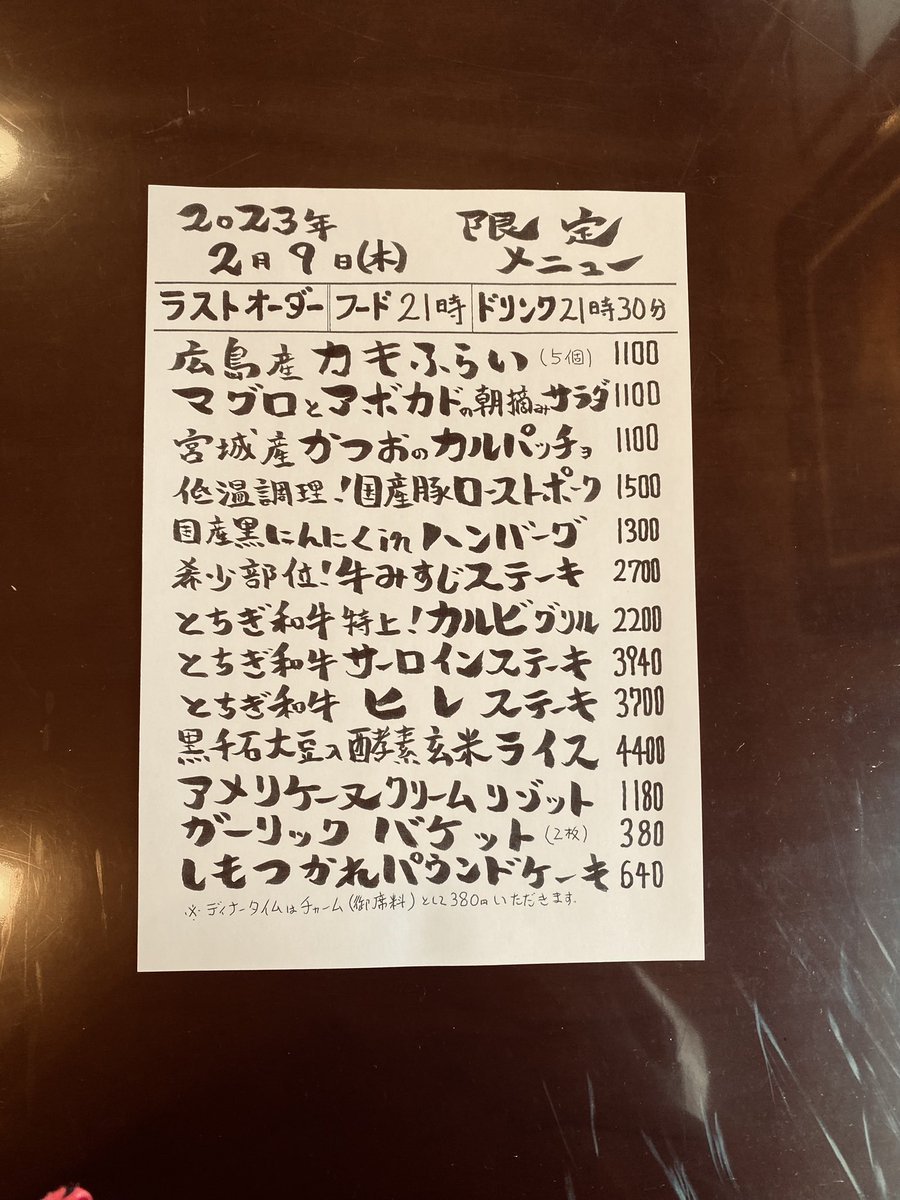 2023年 限定
2月9日(木) メニュー
ラストオーダー フード21時 ドリンク21時30分
広島産カキふらい(5個) 1100
マグロとアボカドの朝摘みサラダ 1100
宮城産かつおのカルパッチョ 1100
低温調理!国産豚ローストポーク 1500
国産黒にんにくinハンバーグ 1300
希少部位!牛みすじステーキ 2700
とちぎ和牛特上!カルビグリル 2200
とちぎ和牛サーロインステーキ 3940
とちぎ和牛ヒレステーキ 3700
黒千石大豆入酵素玄米ライス 4400
アメリケーヌクリームリゾット 1180
ガーリックバケット(2枚) 380
しもつかれパウンドケーキ 640
※ディナータイムはチャーム(御席料)として380円いただきます。